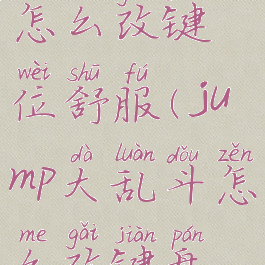 怎么改键
wèi shū fú
位舒服(ju
dà luàn dǒu zěn
mp大乱斗怎
me gǎi jiàn pán
么改键盘